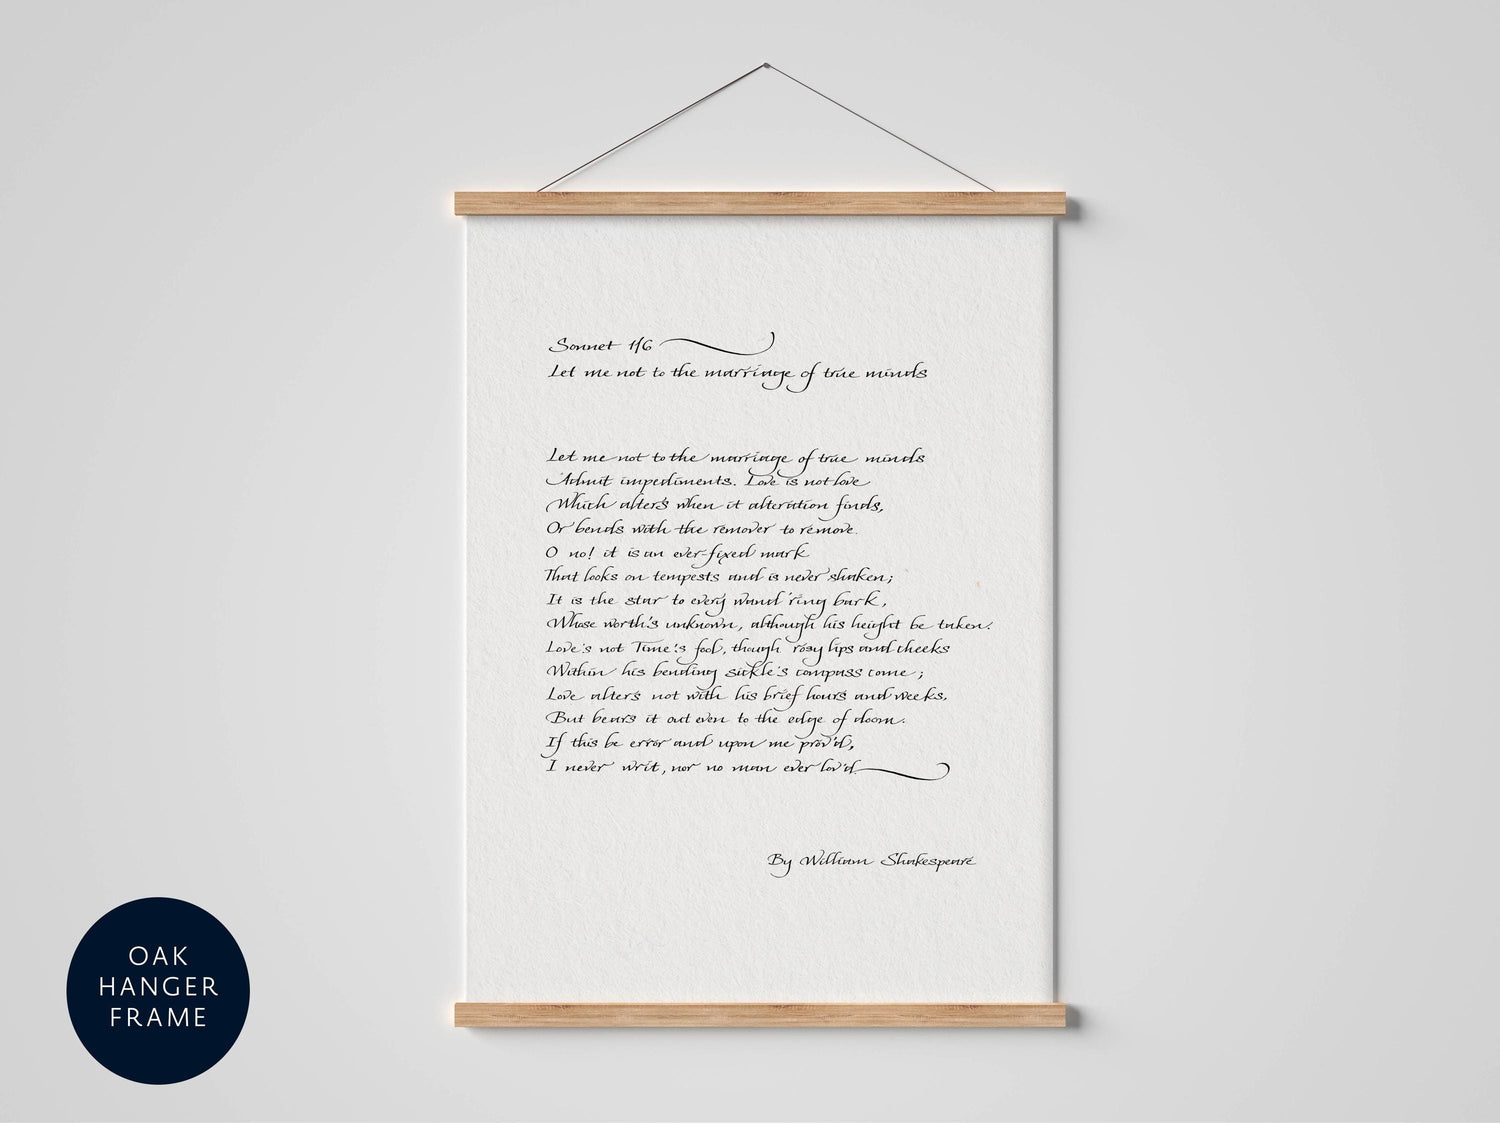 Sonnet 116
Let me not to the marriage of true minds
Let me not to the marriage of true minds
Admit impediments. Love is not love
Which alters when it alteration finds,
Or bends with the remover to remove.
O no! it is an ever-fixed mark
That looks on tempests and is never shaken;
It is the star to every wand'ring bark,
Whose worth's unknown, although his height be taken.
Love's not Time's fool, though rosy lips and cheeks
Within his bending sickle's compass come;
Love alters not with his brief hours and weeks,
But bears it out even to the edge of doom.
If this be error and upon me prov'd,
I never writ, nor no man ever lov'd.
By William Shakespeare
OAK
HANGER
FRAME